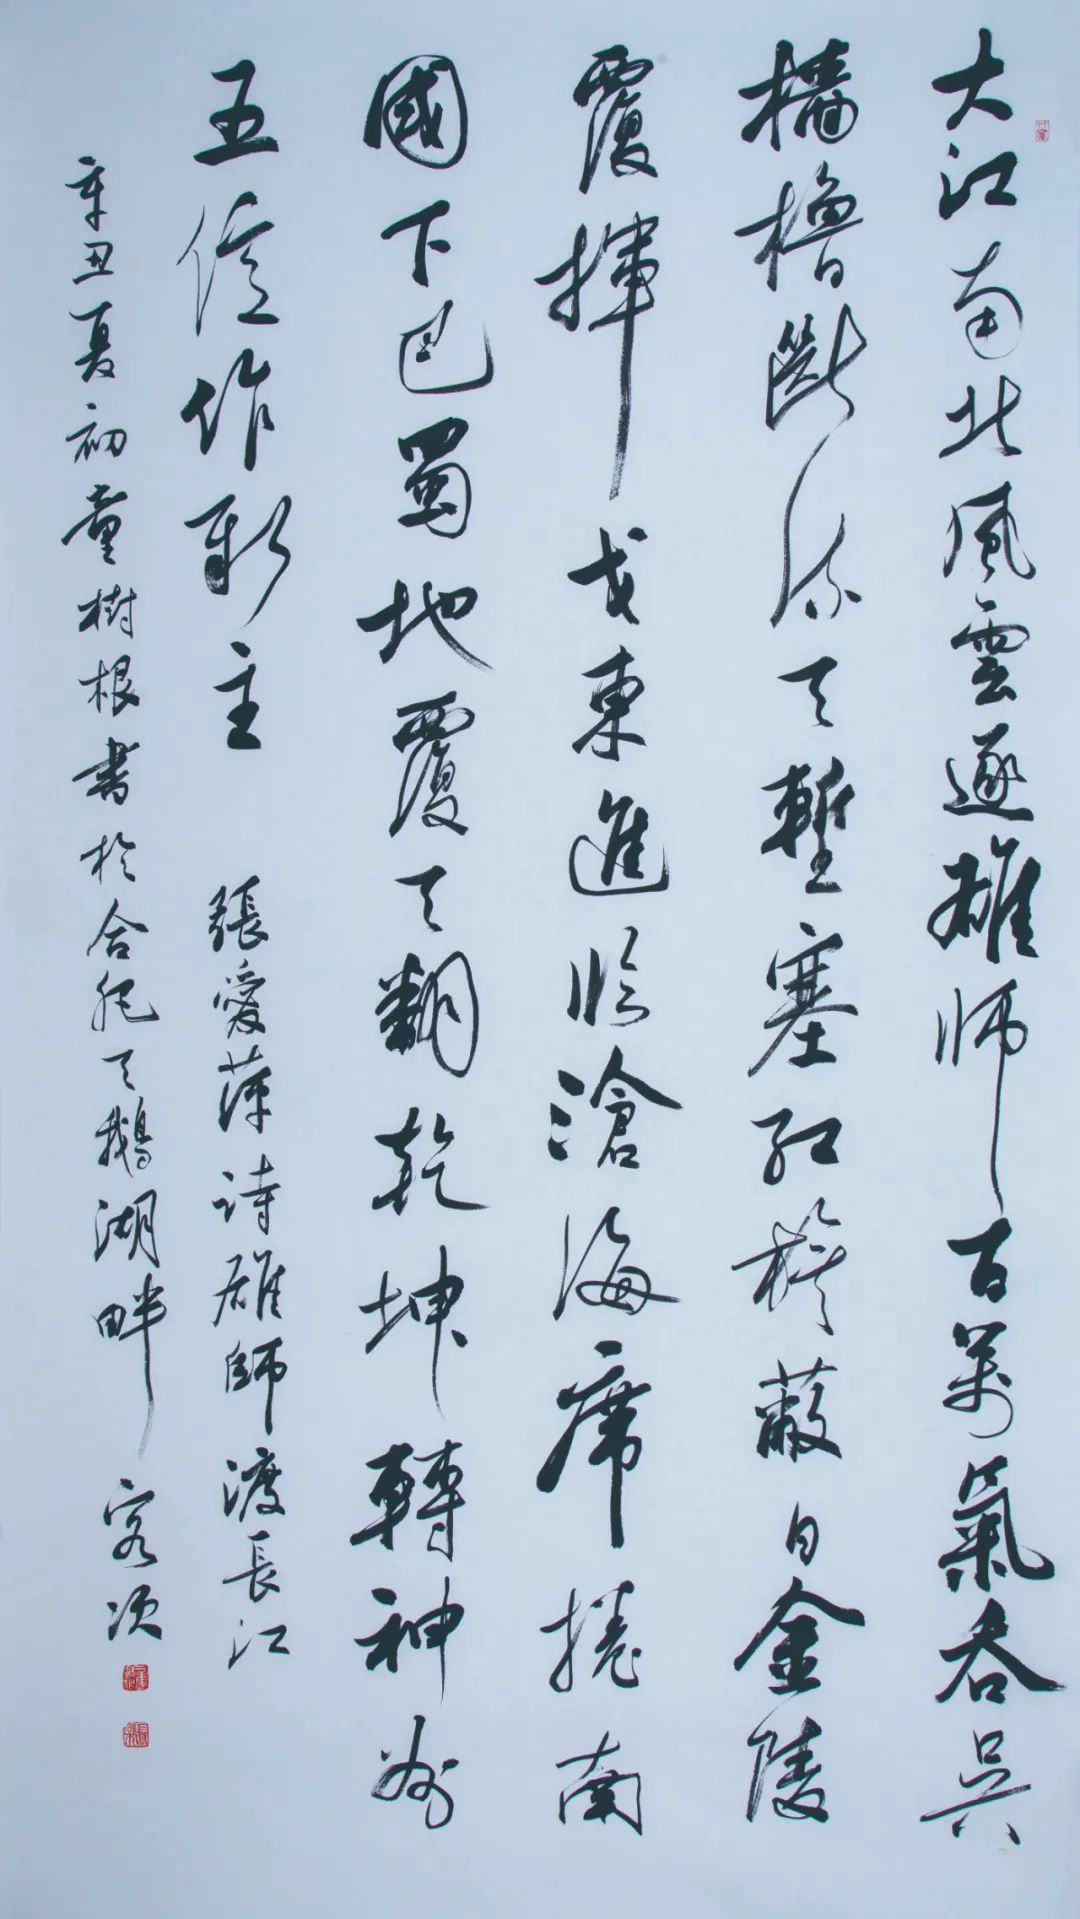 大江南北風雲逐雄师百萬氣吞吳
檣櫓斷流天塹塞红旌蔽日金陵
覆揮戈東進临滄海席捲南
國下巴蜀地覆天翻乾坤轉神州
五億作新主 張愛萍诗雄師渡長江
辛丑夏初童樹根書於合肥天鵝湖畔客次